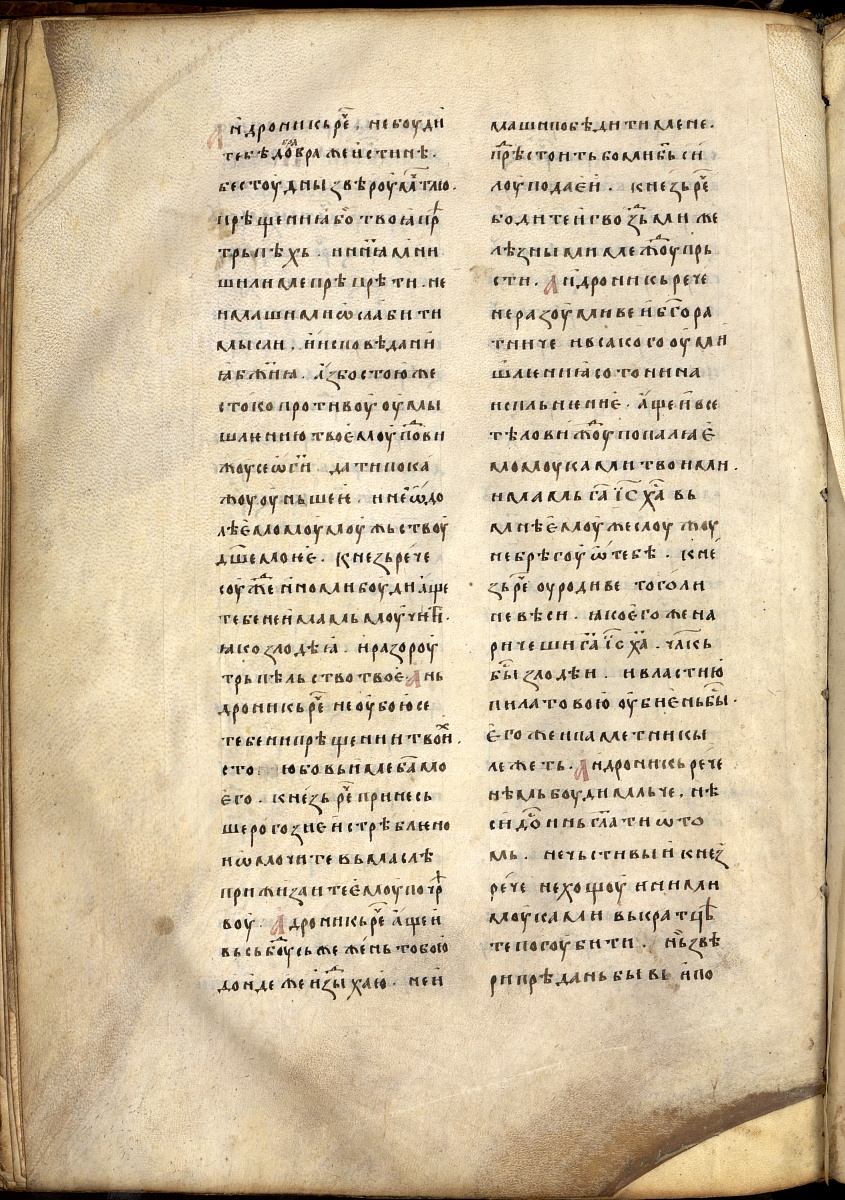 Андроникь рⷱ҇е . не боуди
тебѣ доблⷧ вражеи истинѣ .
бестоудны звѣроу мⷭ҇тлю .
прѣщениꙗ бо твоꙗ пⷣр
трьпѣхь . и ниꙗ ми ни
ши ли ме прѣпрѣти . не
имаши ми ѡслабити
мысли . и исповѣдани
ꙗ бж҃иꙗ . аз бо стою же
стоко противоу оумы
шлению твоемоу повⷣи
жоу се ѡгнⷨи да ти пока
жоу оуньшее . и не ѡдⷣо
лѣемо моумоужьствоу
дш҃е мое . кнезь рече
соуждⷣе ино ми боуди аще
тебе не имамь моучиⷮ .
ꙗко злодѣꙗ . и разороу
трьпѣльство твое . Ань
дроникь рⷱ҇е не оубою се
тебе ни прѣщении твоиⷯ .
сто любовь име бам҃о
его . кнезь рⷱ҇е принесь
ше рогозие и стрѣблено
и ѡмочите вь маслѣ
прижизаите емоу по чрⷺ
воу . Адроникь рⷱ҇е аще и
вьсь боⷣусьжежень тобою
дондеже издⷣыхаю . не и
маши побѣдити мене .
прⷣѣстоить бо ми бь҃ си
лоу подаеи . кнезь рⷱ҇е
бодите и гвоздⷣьми же
лѣзными межⷣоу прь
сти . Андроникь рече
неразоумиве и бг҃ора
тниче и всакого оуми
шлениꙗ сотонина
испльнение . аще и все
тѣло ви жⷣоу попалꙗе
момоуками твоими .
имамь га҃ іс҃ ха҃ вь
мнѣ емоуже слоужоу
не брѣгоу ѡ тебѣ . кне
зь рⷱ҇е оуродиве того ли
не вѣси . ꙗко его же на
ричеши га҃ іс҃ ха҃ . чл҃кь
бы҃ злодѣи . и властию
пилатовою оубиень бы҃ .
его же и паметники
лежеть . Андроникь рече
нѣмь боуди мльче . нѣ
си доⷭинь гл҃ати ѡ то
мь . нечьстивыи кнезⷥ
рече не хощоу иними
моуками вькратцѣ
те погоубити . нь звѣ
ри прѣдань бывь и по